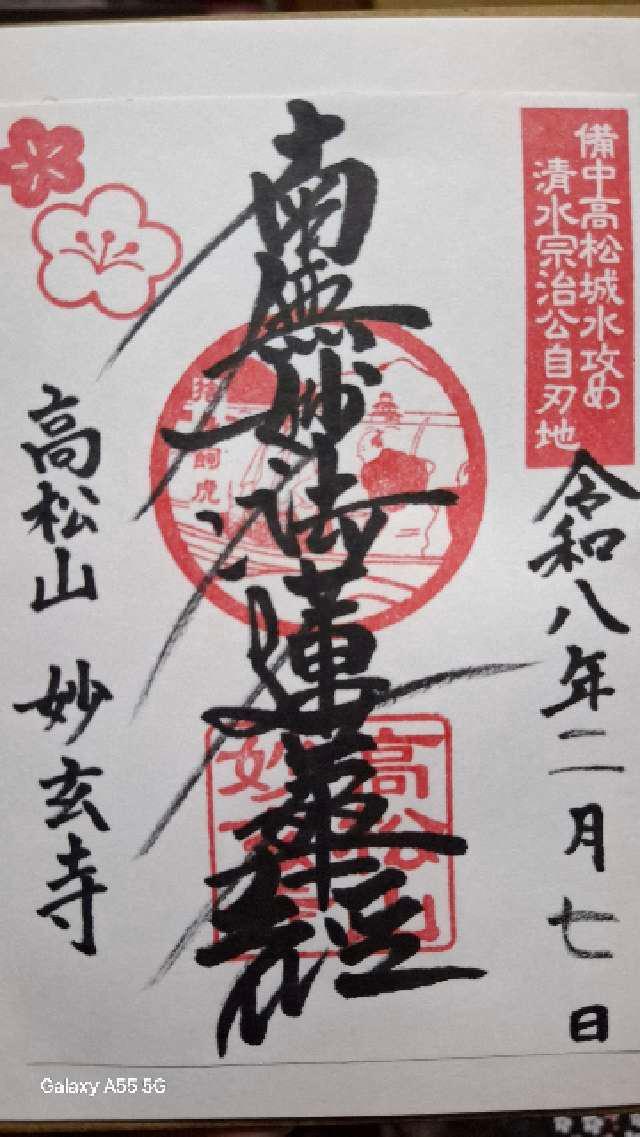 備中高松城水攻め
清水宗治公自刃地
令和八年二月七日
南無妙法蓮華経
高松山
妙玄寺
高松山 妙玄寺
Galaxy A55 5G